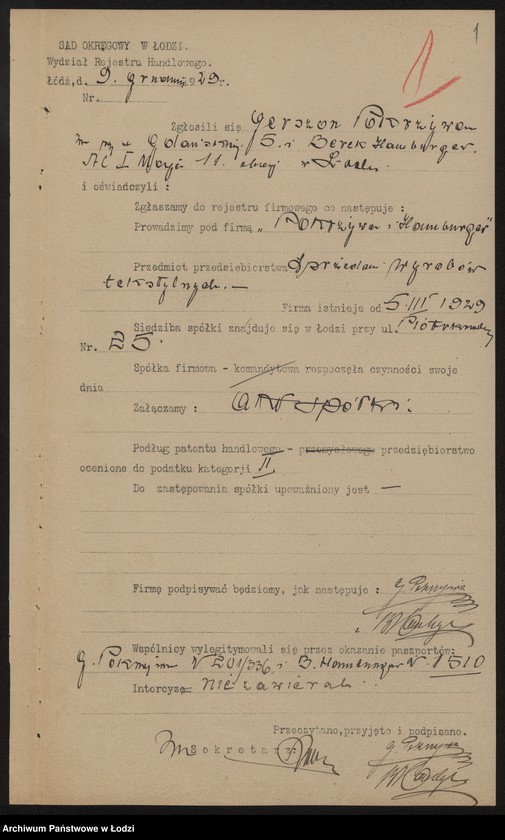 1
1
SĄD OKRĘGOWY W ŁODZI.
Wydział Rejestru Handlowego.
Łódź, d. 9. grudnia 1929 r.
Nr.
Zgłosili się Gerszon Pokrzywa
5. i Berek Hamburger.
Al. I Maja 11. w Łodzi
i oświadczyli :
Zgłaszamy do rejestru firmowego co następuje :
Prowadzimy pod firmą „Pokrzywa i Hamburger"
Przedmiot przedsiębiorstwa Sprzedaż wyrobów
tekstylnych. —
Firma istnieje od 5. III 1929
Siedziba spółki znajduje się w Łodzi przy ul. Piotrkowskiej
Nr. 25.
Spółka firmowa - komandytowa rozpoczęła czynności swoje
dnia
Załączamy : Akt spółki.
Podług patentu handlowego - przemysłowego przedsiębiorstwo
ocenione do podatku kategorji II
Do zastępowania spółki upoważniony jest —
Firmę podpisywać będziemy, jak następuje :
Wspólnicy wylegitymowali się przez okazanie paszportów:
G. Pokrzywa N 201/336 i B. Hamburger N 1510
Intercyzę nie zawierali.
Przeczytano, przyjęto i podpisano.
Sekretarz:
Archiwum Państwowe w Łodzi